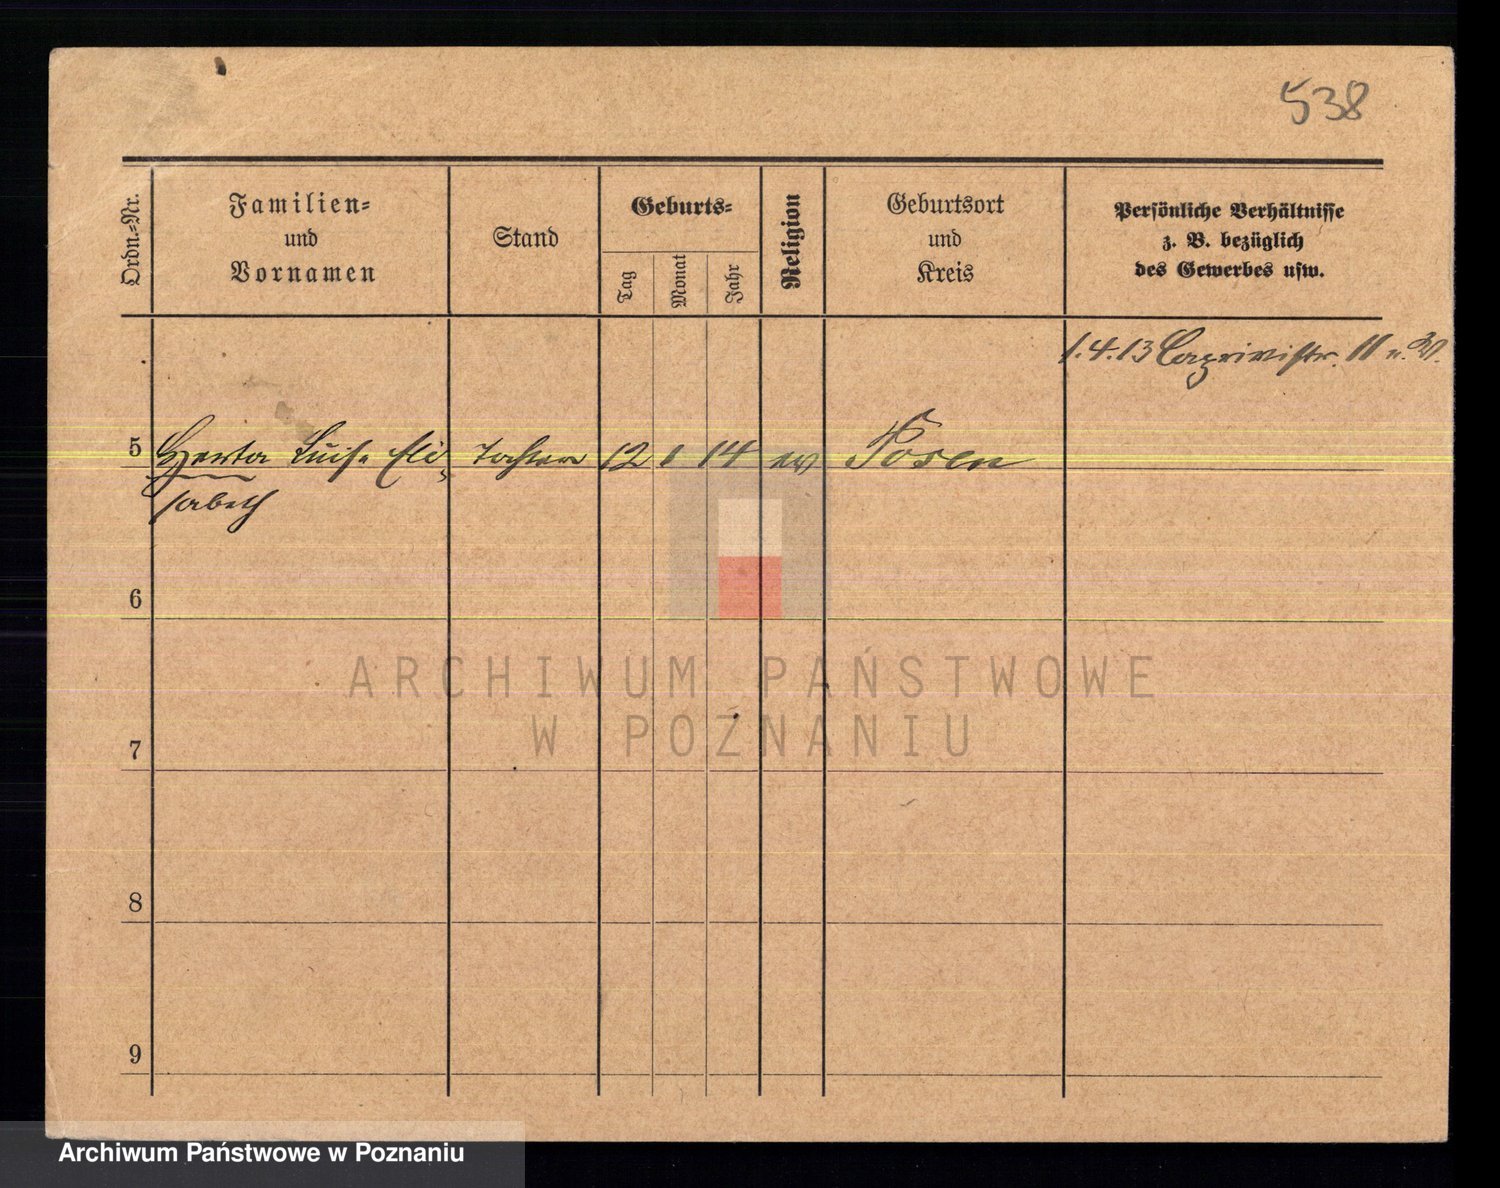 538
Ordn.=Nr.
Familien=
und
Vornamen
Stand
Geburts=
Tag
Monat
Jahr
Religion
Geburtsort
und
Kreis
Persönliche Verhältnisse
z. B. bezüglich
des Gewerbes usw.
1.4.13 Caprivistr. 11 u. W.
5 Herta Luise Eli- Tochter 12 1 14 ev Posen
sabeth
6
7
8
9
ARCHIWUM PAŃSTWOWE
W POZNANIU
Archiwum Państwowe w Poznaniu